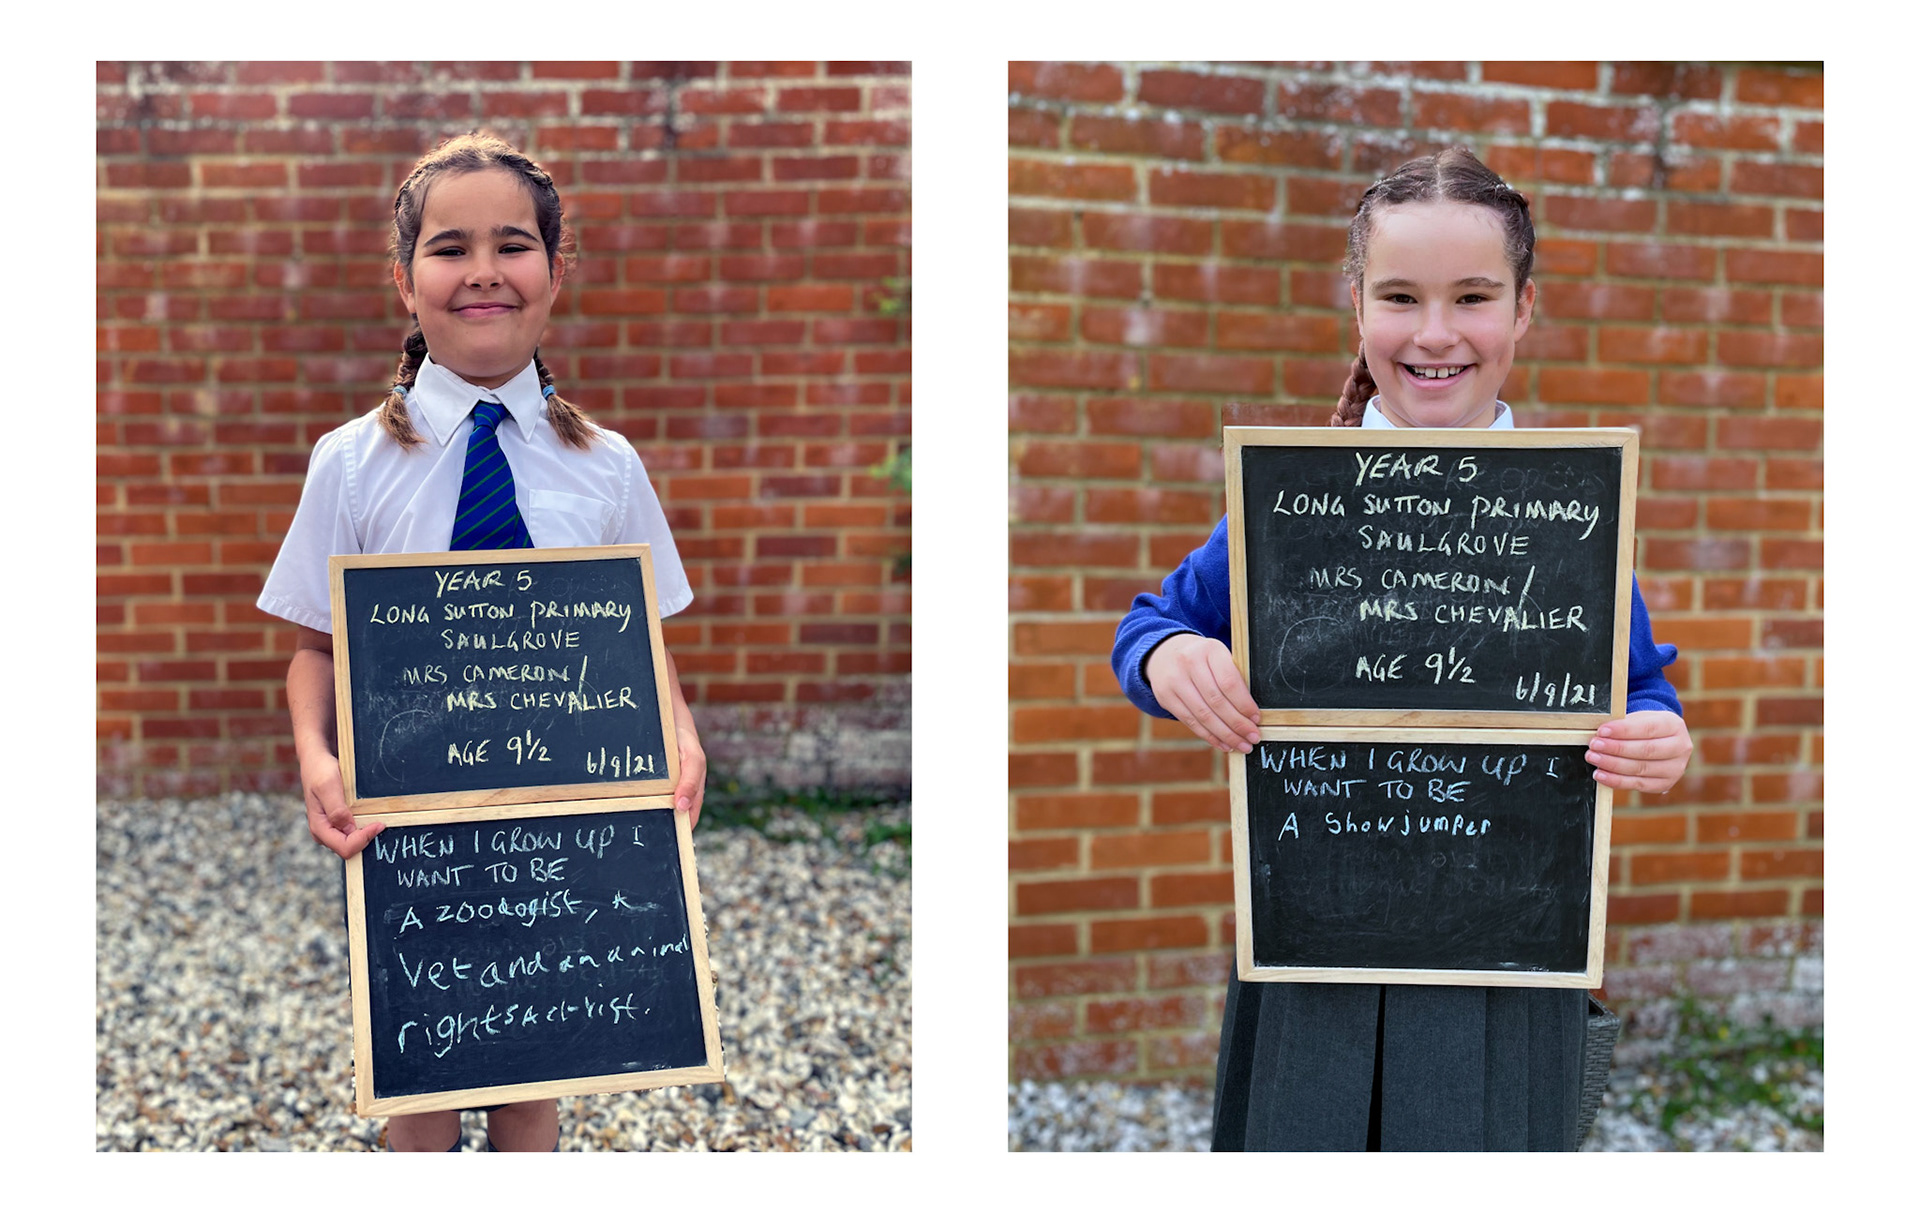 YEAR 5
LONG SUTTON PRIMARY
SAULGROVE
MRS CAMERON/
MRS CHEVALIER
AGE 9½
6/9/21
WHEN I GROW UP I
WANT TO BE
A zoologist, a
Vet and an animal
rights Activist.
YEAR 5
LONG SUTTON PRIMARY
SAULGROVE
MRS CAMERON/
MRS CHEVALIER
AGE 9½
6/9/21
WHEN I GROW UP I
WANT TO BE
A Showjumper